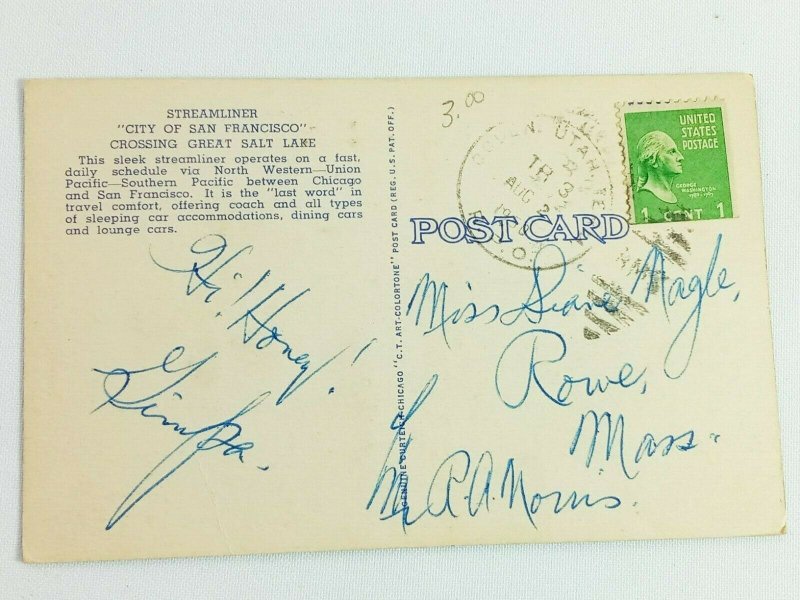 STREAMLINER
"CITY OF SAN FRANCISCO"
CROSSING GREAT SALT LAKE
This sleek streamliner operates on a fast,
daily schedule via North Western—Union
Pacific—Southern Pacific between Chicago
and San Francisco. It is the "last word" in
travel comfort, offering coach and all types
of sleeping car accommodations, dining cars
and lounge cars.
Hi! Honey!
Gimpa.
GENUINE CURTEICH-CHICAGO "C.T. ART-COLORTONE" POST CARD (REG. U.S. PAT. OFF.)
3.00
UTAH
TR 3
AUG
R.P.O.
UNITED
STATES
POSTAGE
GEORGE
WASHINGTON
1 CENT 1
POST CARD
Miss Diane Nagle,
Rowe,
Mass.
P.A. Norris.